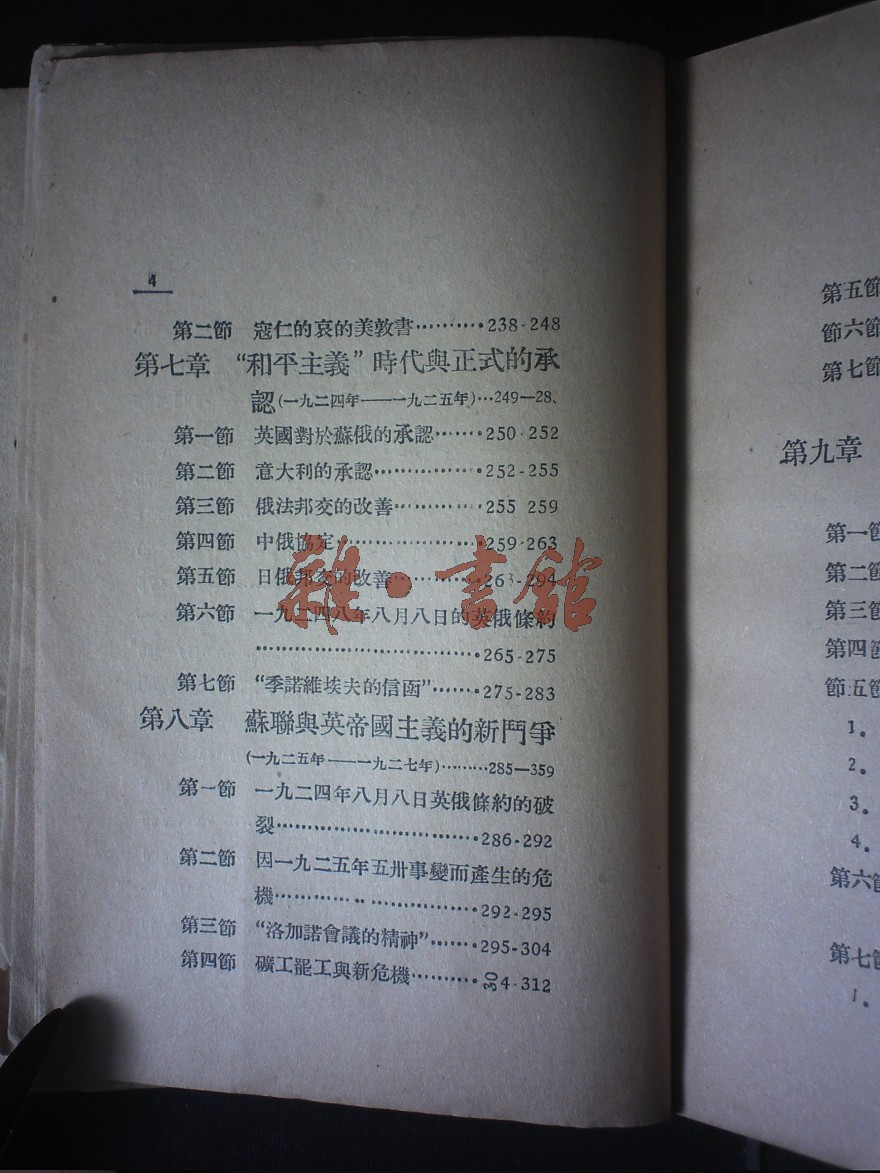 4
第二節 寇仁的哀的美敦書··········238-248
第七章 “和平主義”時代與正式的承
認(一九二四年——一九二五年)···249—28
第一節 英國對於蘇俄的承認·······250-252
第二節 意大利的承認················252-255
第三節 俄法邦交的改善·············255 259
第四節 中俄協定······················259-263
第五節 日俄邦交的改善·············263-294
第六節 一九二四八年八月八日的英俄條約
·································265-275
第七節 “季諾維埃夫的信函”·······275-283
第八章 蘇聯與英帝國主義的新鬥爭
(一九二五年——一九二七年)·········285—359
第一節 一九二四年八月八日英俄條約的破
裂······························286-292
第二節 因一九二五年五卅事變而產生的危
機······························292-295
第三節 “洛加諾會議的精神”·······295-304
第四節 礦工罷工與新危機··········304-312
雜·書館
第五節
節六節
第七節
第九章
第一節
第二節
第三節
第四節
節五節
1.
2.
3.
4.
第六節
第七節
1.